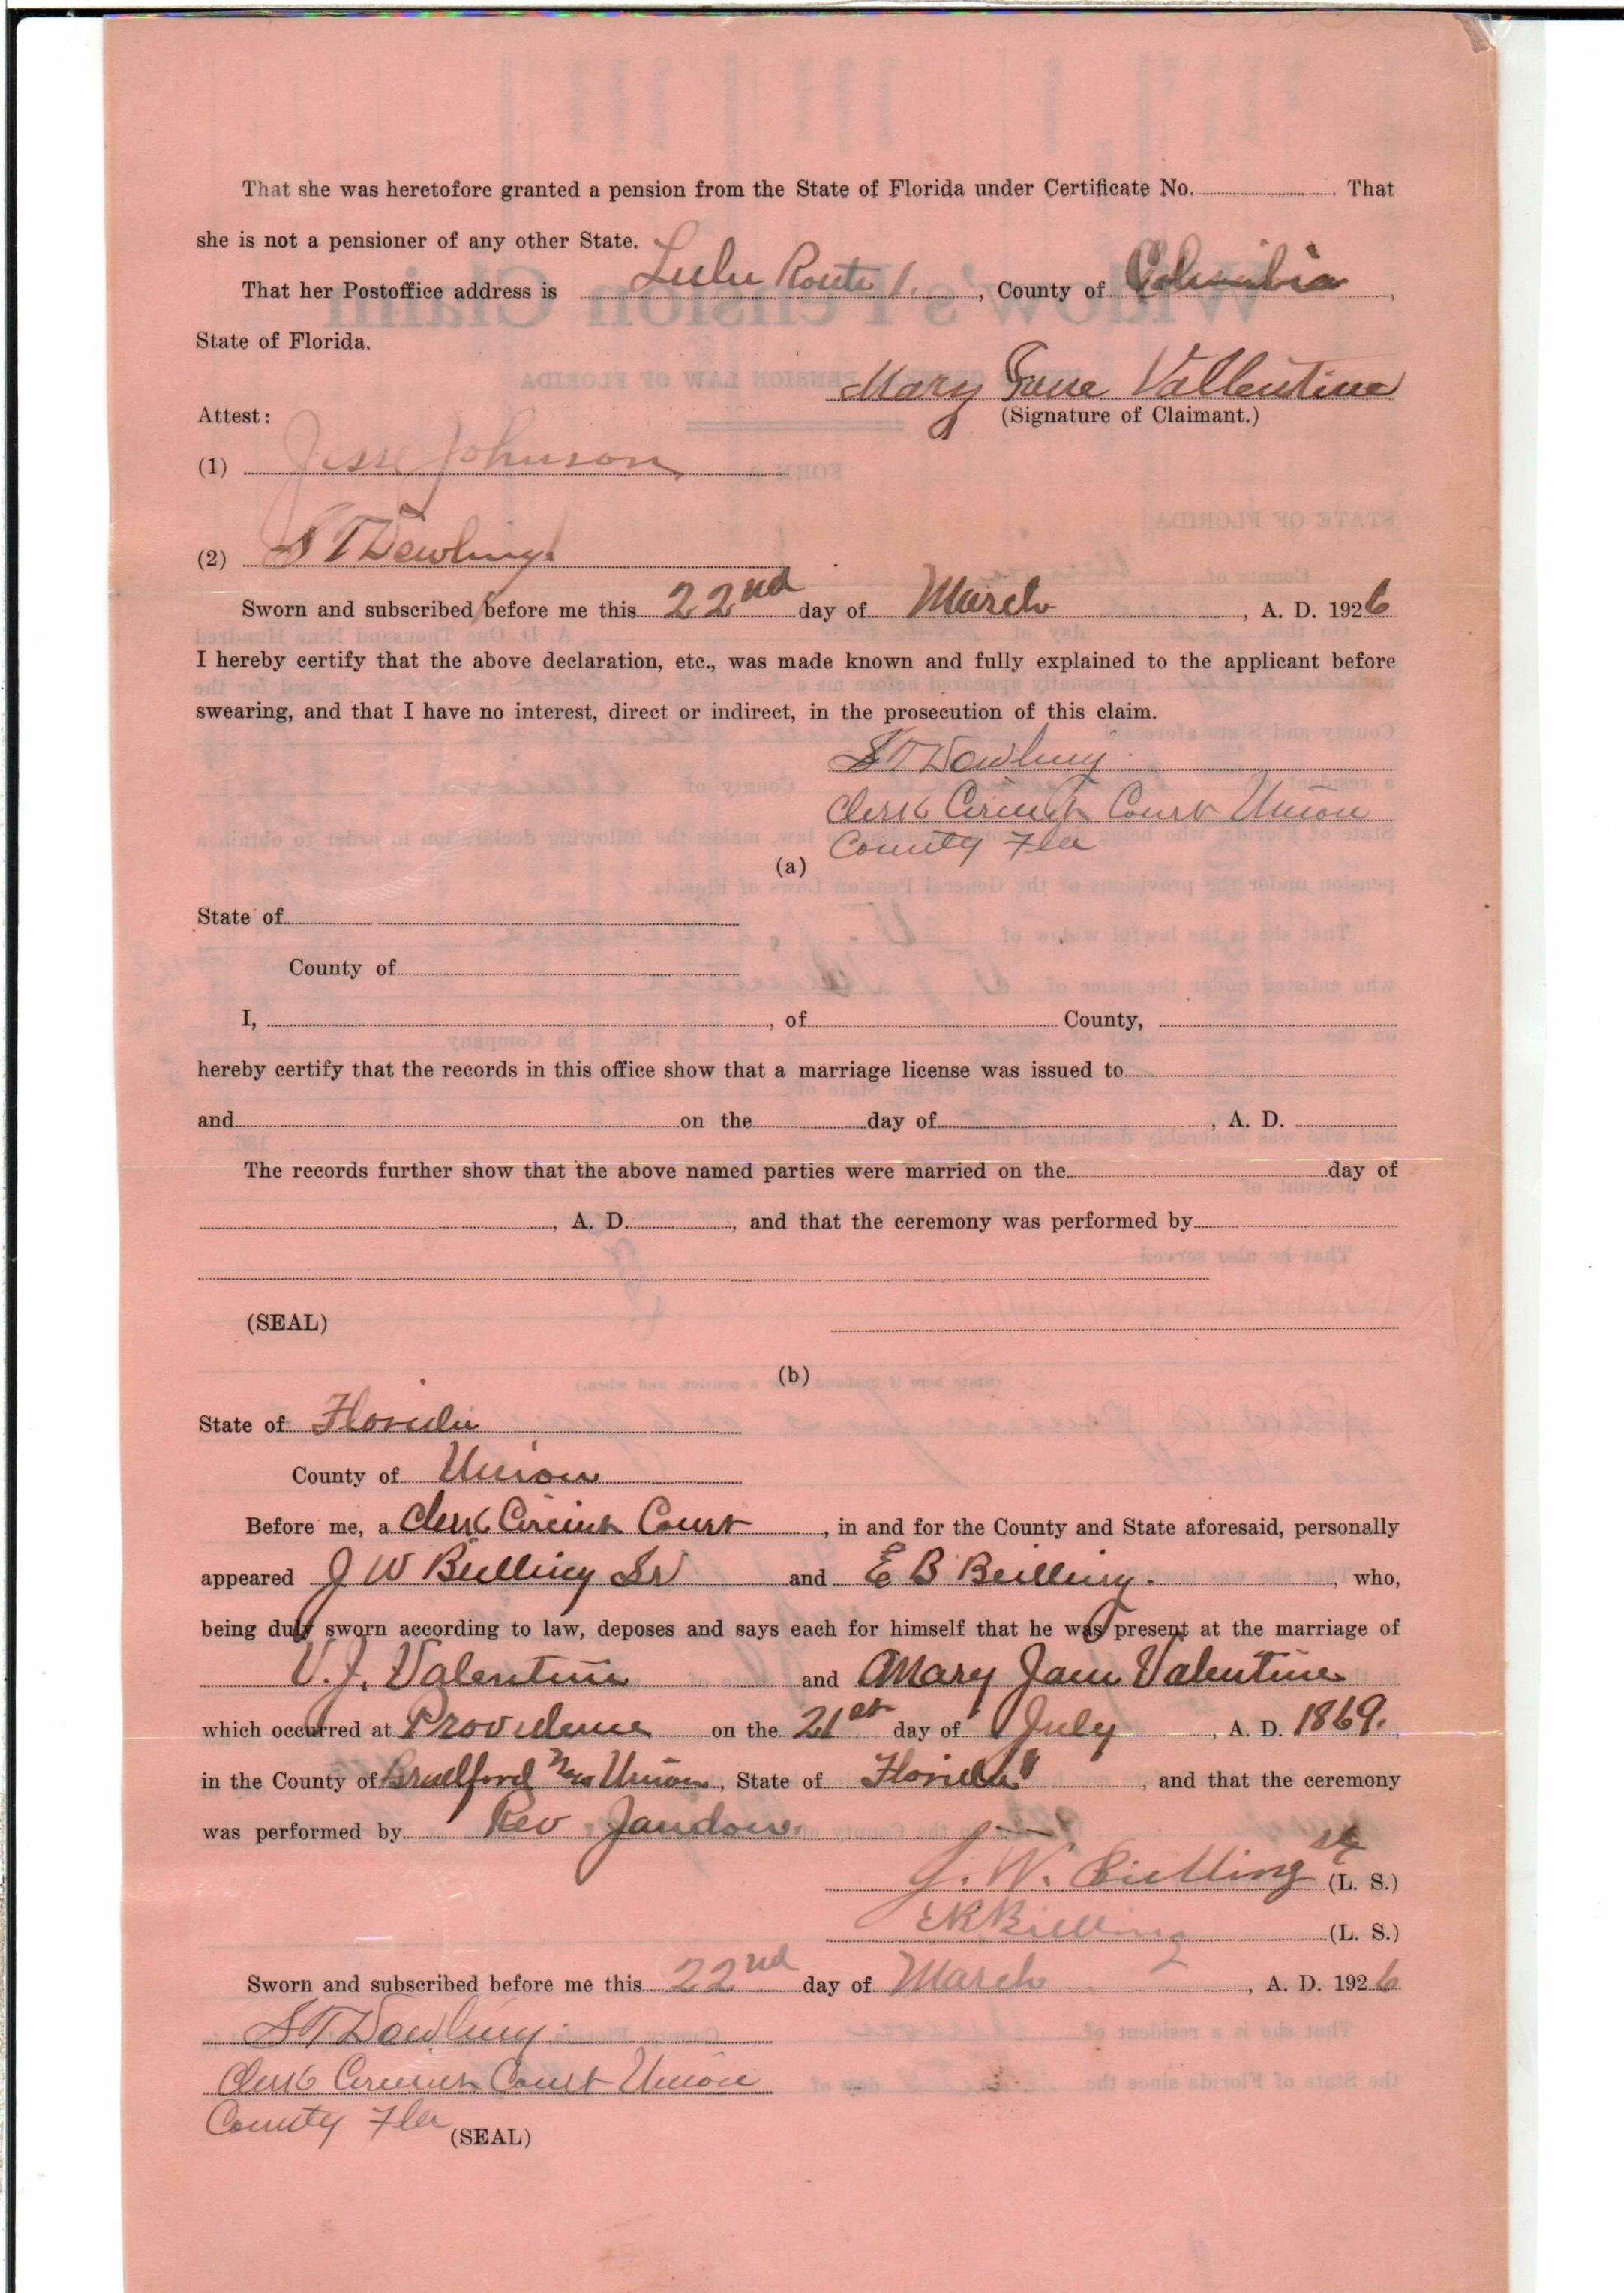 That she was heretofore granted a pension from the State of Florida under Certificate No. . That
she is not a pensioner of any other State.
That her Postoffice address is Lulu Route 1. , County of Columbia ,
State of Florida.
Mary Jane Vallentine
Attest: (Signature of Claimant.)
(1) Jesse Johnson
(2) S T Dowling
Sworn and subscribed before me this 22nd day of March , A. D. 1926
I hereby certify that the above declaration, etc., was made known and fully explained to the applicant before
swearing, and that I have no interest, direct or indirect, in the prosecution of this claim.
S T Dowling
Clerk Circuit Court Union
County Fla
(a)
State of
County of
I, , of County,
hereby certify that the records in this office show that a marriage license was issued to
and on the day of , A. D.
The records further show that the above named parties were married on the day of
, A. D. , and that the ceremony was performed by
(SEAL)
(b)
State of Florida
County of Union
Before me, a Clerk Circuit Court , in and for the County and State aforesaid, personally
appeared J W Bielling Sr and E B Bielling. , who,
being duly sworn according to law, deposes and says each for himself that he was present at the marriage of
V. J. Valentine and Mary Jane Valentine
which occurred at Providence on the 21st day of July , A. D. 1869.
in the County of Bradford now Union , State of Florida , and that the ceremony
was performed by Rev Jandon.
J. W. Bielling Sr (L. S.)
Bielling (L. S.)
Sworn and subscribed before me this 22nd day of March , A. D. 1926
S T Dowling
Clerk Circuit Court Union
County Fla
(SEAL)